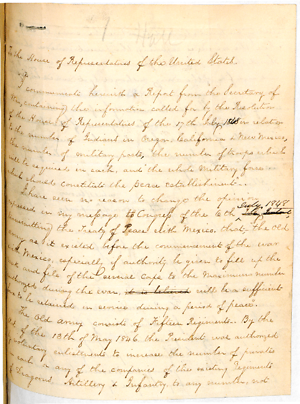 To the House of Representatives of the United States.
I communicate herewith a Report from the Secretary of
War, containing the information called for by the Resolution
of the House of Representatives of the 17th July, 1848 in relation
to the number of Indians in Oregon, California & New Mexico,
the number of military posts, the number of troops which
will be required in each, and the whole military force
which should constitute the peace establishment.
I have seen no reason to change the opinion
expressed in my message to Congress of the 6th July, 1848
transmitting the Treaty of Peace with Mexico, that "The Old
Army as it existed before the commencement of the war
with Mexico, especially if authority be given to fill up the
rank and file of the several corps to the maximum number
authorized during the war, it is believed will be a sufficient
force to be retained in service during a period of peace".
The Old Army consists of Fifteen Regiments. By the
Act of the 13th of May 1846 the President was authorized
by voluntary enlistments to increase the number of privates
in each or any of the companies of the existing Regiments
of Dragoons, Artillery & Infantry to any number, not